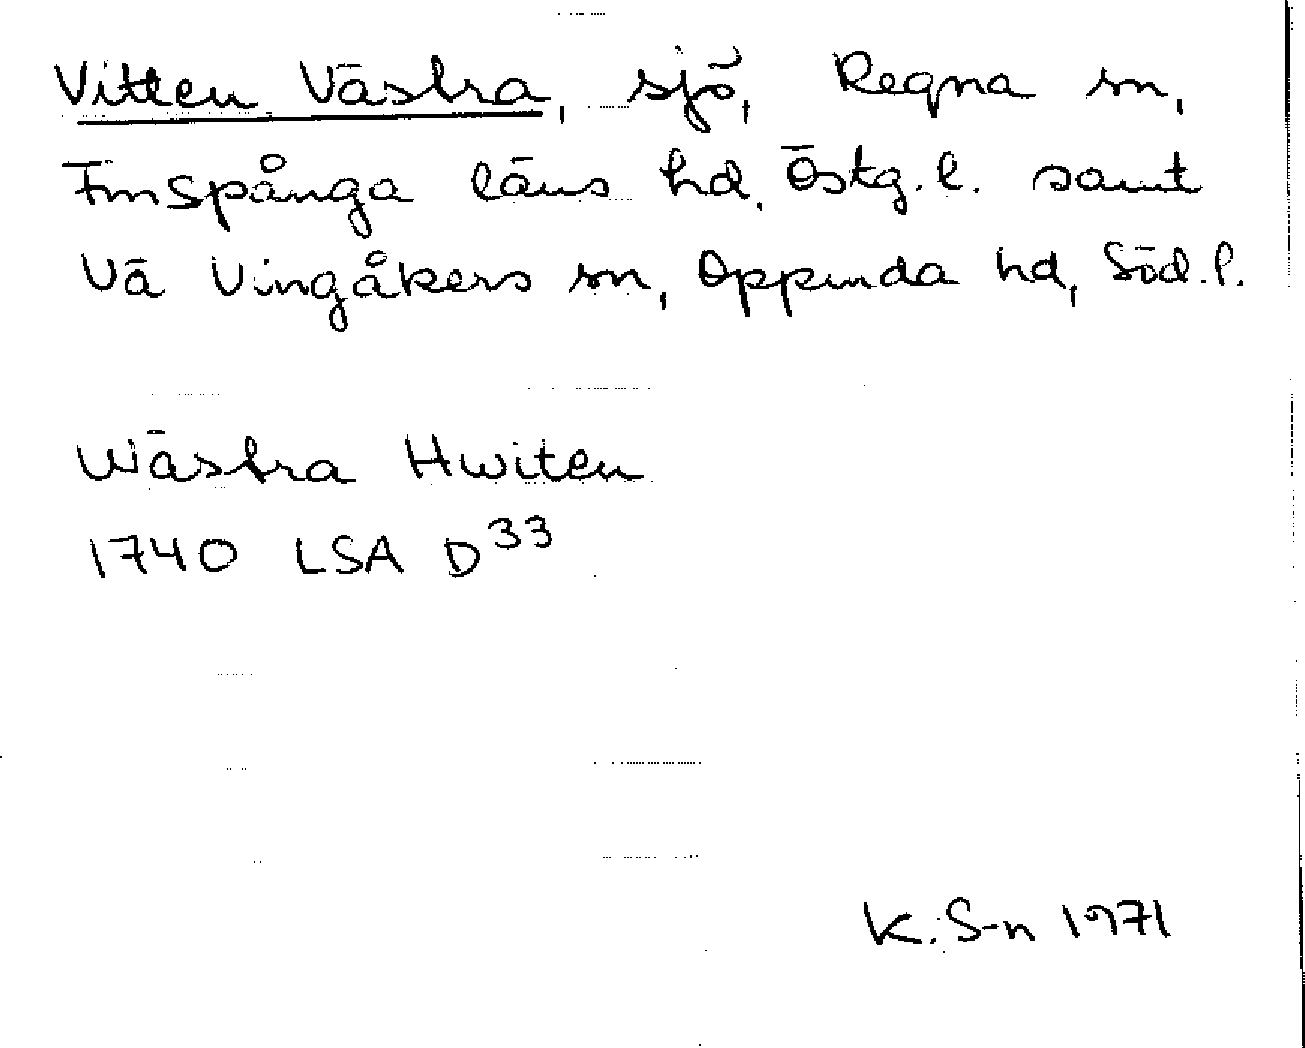 Vitten Västra, sjö, Regna sn,
Finspånga läns hd, Östg.l. samt
Vä Vingåkers sn, Oppunda hd, Söd.l.
Wästra Hwiten
1740 LSA D33
K. S-n 1971